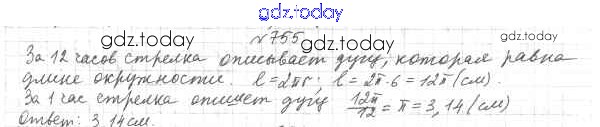 gdz.today
№755
gdz.today gdz.today
За 12 часов стрелка описывает дугу, которая равна
длине окружности. l=2πr; l=2π·6=12π(см).
За 1 час стрелка опишет дугу 12π/12=π=3,14(см)
Ответ: 3,14см.
gdz.today gdz.today